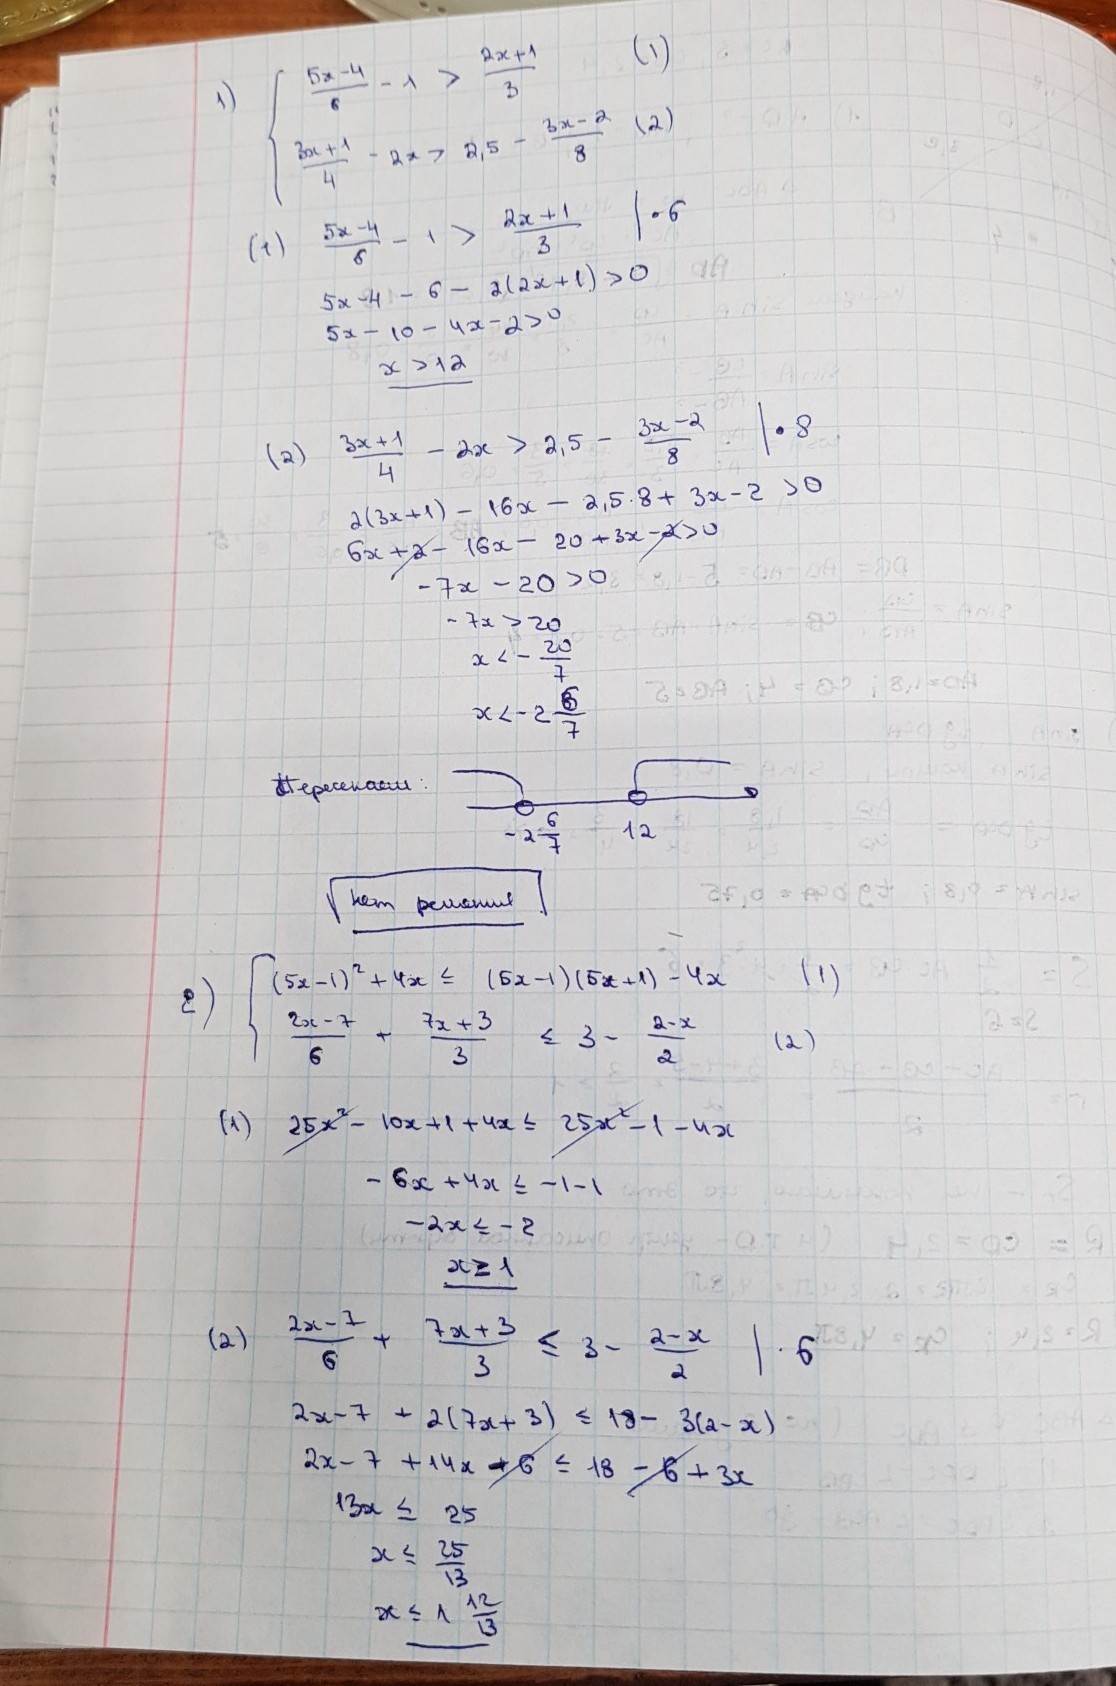 1) { (5x-4)/6 - 1 > (2x+1)/3 (1)
(3x+1)/4 - 2x > 2,5 - (3x-2)/8 (2)
(1) (5x-4)/6 - 1 > (2x+1)/3 | · 6
5x-4 - 6 - 2(2x+1) > 0
5x - 10 - 4x - 2 > 0
x > 12
(2) (3x+1)/4 - 2x > 2,5 - (3x-2)/8 | · 8
2(3x+1) - 16x - 2,5·8 + 3x-2 > 0
6x + 2 - 16x - 20 + 3x - 2 > 0
-7x - 20 > 0
-7x > 20
x < - 20/7
x < -2 6/7
Пересекаем:
-2 6/7 12
нет решения
2) { (5x-1)² + 4x ≤ (5x-1)(5x+1) - 4x (1)
(2x-7)/6 + (7x+3)/3 ≤ 3 - (2-x)/2 (2)
(1) 25x² - 10x + 1 + 4x ≤ 25x² - 1 - 4x
- 6x + 4x ≤ -1-1
-2x ≤ -2
x ≥ 1
(2) (2x-7)/6 + (7x+3)/3 ≤ 3 - (2-x)/2 | · 6
2x-7 + 2(7x+3) ≤ 18 - 3(2-x)
2x-7 + 14x + 6 ≤ 18 - 6 + 3x
13x ≤ 25
x ≤ 25/13
x ≤ 1 12/13